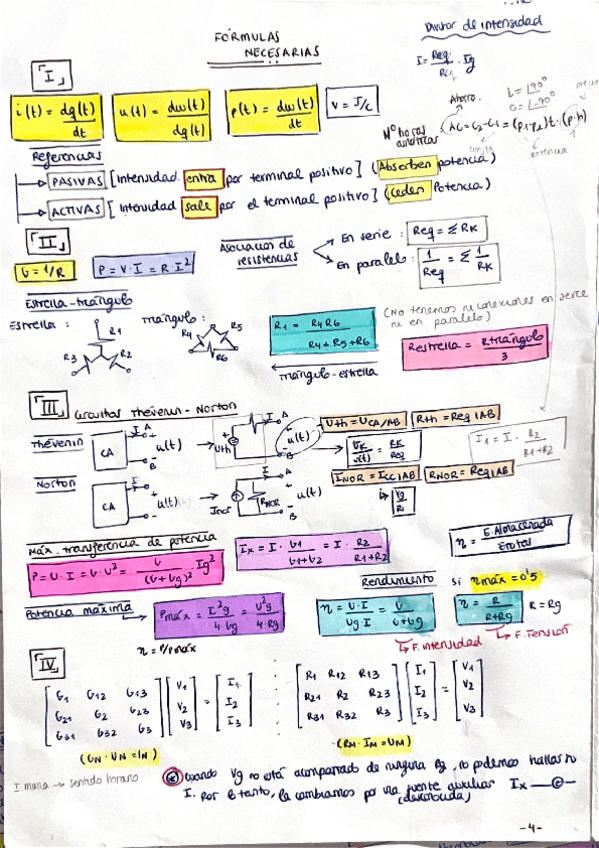 FÓRMULAS
NECESARIAS
Divisor de intensidad
I = Req/RL1 · Ig
I
i(t) = dq(t)/dt
u(t) = dw(t)/dq(t)
p(t) = dw(t)/dt
V = J/C
L = L90°
C = L-90°
Ahorro.
Nº horas
AC = C2-C1 = (P1-P2)t · (p·h)
potencia
Referencias
PASIVAS [Intensidad entra por terminal positivo] (Absorben potencia)
ACTIVAS [Intensidad sale por el terminal positivo] (Ceden Potencia)
II
G = 1/R
P = V·I = R·I²
Asociación de resistencias
En serie : Req = Σ RK
En paralelo : 1/Req = Σ 1/RK
Estrella-triángulo
Estrella :
R1
R3
R2
Triángulo :
R4
R5
R6
R1 = R4R6 / R4+R5+R6
triángulo-estrella
(No tenemos ni conexiones en serie
ni en paralelo)
Restrella = Rtriángulo / 3
III Circuitos Thévenin-Norton
Thévenin
CA
I
A
+
u(t)
-
B
Uth
I
A
+
u(t)
-
B
Uth = UCA/AB
Rth = Req|AB
UK/u(t) = RK/Req
I1 = I · R2/R1+R2
Norton
CA
I
A
+
u(t)
-
B
Inor
RNOR
I
A
+
u(t)
-
B
INOR = Icc|AB
RNOR = Req|AB
Vg/R1
Máx. transferencia de potencia
P = U·I = G·U² = G/(G+Gg)² · Ig²
Ix = I · G1/G1+G2 = I · R2/R1+R2
η = E.Almacenada/Etotal
Rendimiento si ηmáx = 0'5
Potencia máxima
Pmáx = I²g/4·Gg = U²g/4·Rg
η = P/Pmáx
η = U·I/Ug·I = G/G+Gg
η = R/R+Rg
R = Rg
F. intensidad
F. Tensión
IV
[G1 G12 G13] [V1] = [I1] : [R1 R12 R13] [I1] = [V1]
[G21 G2 G23] [V2] = [I2] : [R21 R2 R23] [I2] = [V2]
[G31 G32 G3] [V3] = [I3] : [R31 R32 R3] [I3] = [V3]
(GN · UN = IN)
(RM · IM = UM)
I malla → sentido horario
* Cuando Vg no está acompañado de ninguna Rg, no podemos hallar su
I. Por lo tanto, la cambiamos por una fuente auxiliar Ix
(desconocida)
-4-